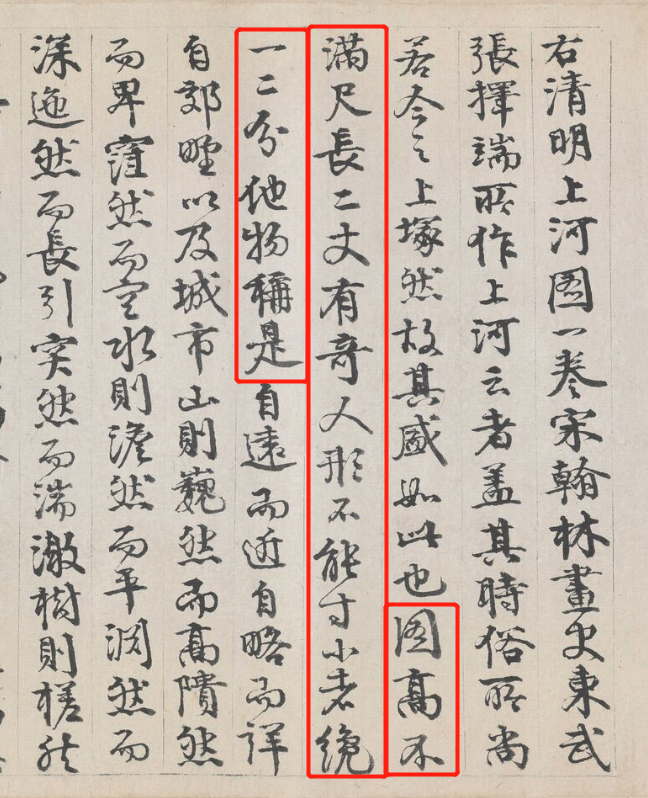 右清明上河圖一卷宋翰林畫史東武
張擇端所作上河云者蓋其時俗所尚
若今之上塚然故其盛如此也圖高不
滿尺長二丈有奇人形不能寸小者纔
一二分他物稱是自遠而近自略而詳
自郊野以及城市山則巍然而高隤然
而卑窪然而空水則澹然而平淵然而
深迤然而長引突然而湍激樹則槎然